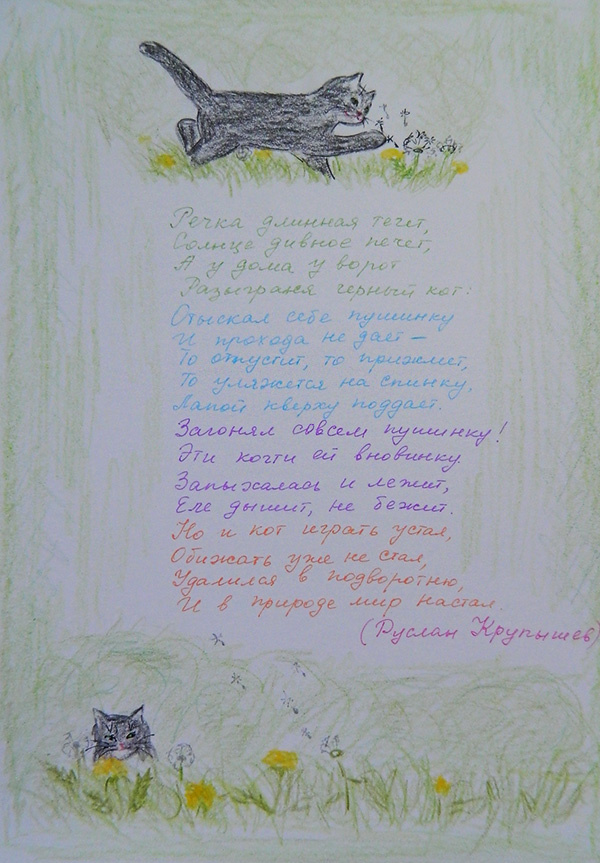 Речка длинная течёт,
Солнце дивное печёт,
А у дома у ворот
Разыгрался чёрный кот:
Отыскал себе пушинку
И прохода не даёт –
То отпустит, то прижмёт,
То уляжется на спинку,
Лапой кверху поддаёт.
Загонял совсем пушинку!
Эти когти ей вновинку.
Запыхалась и лежит,
Еле дышит, не бежит.
Но и кот играть устал,
Обижать уже не стал,
Удалился в подворотню,
И в природе мир настал.
(Руслан Крупышев)